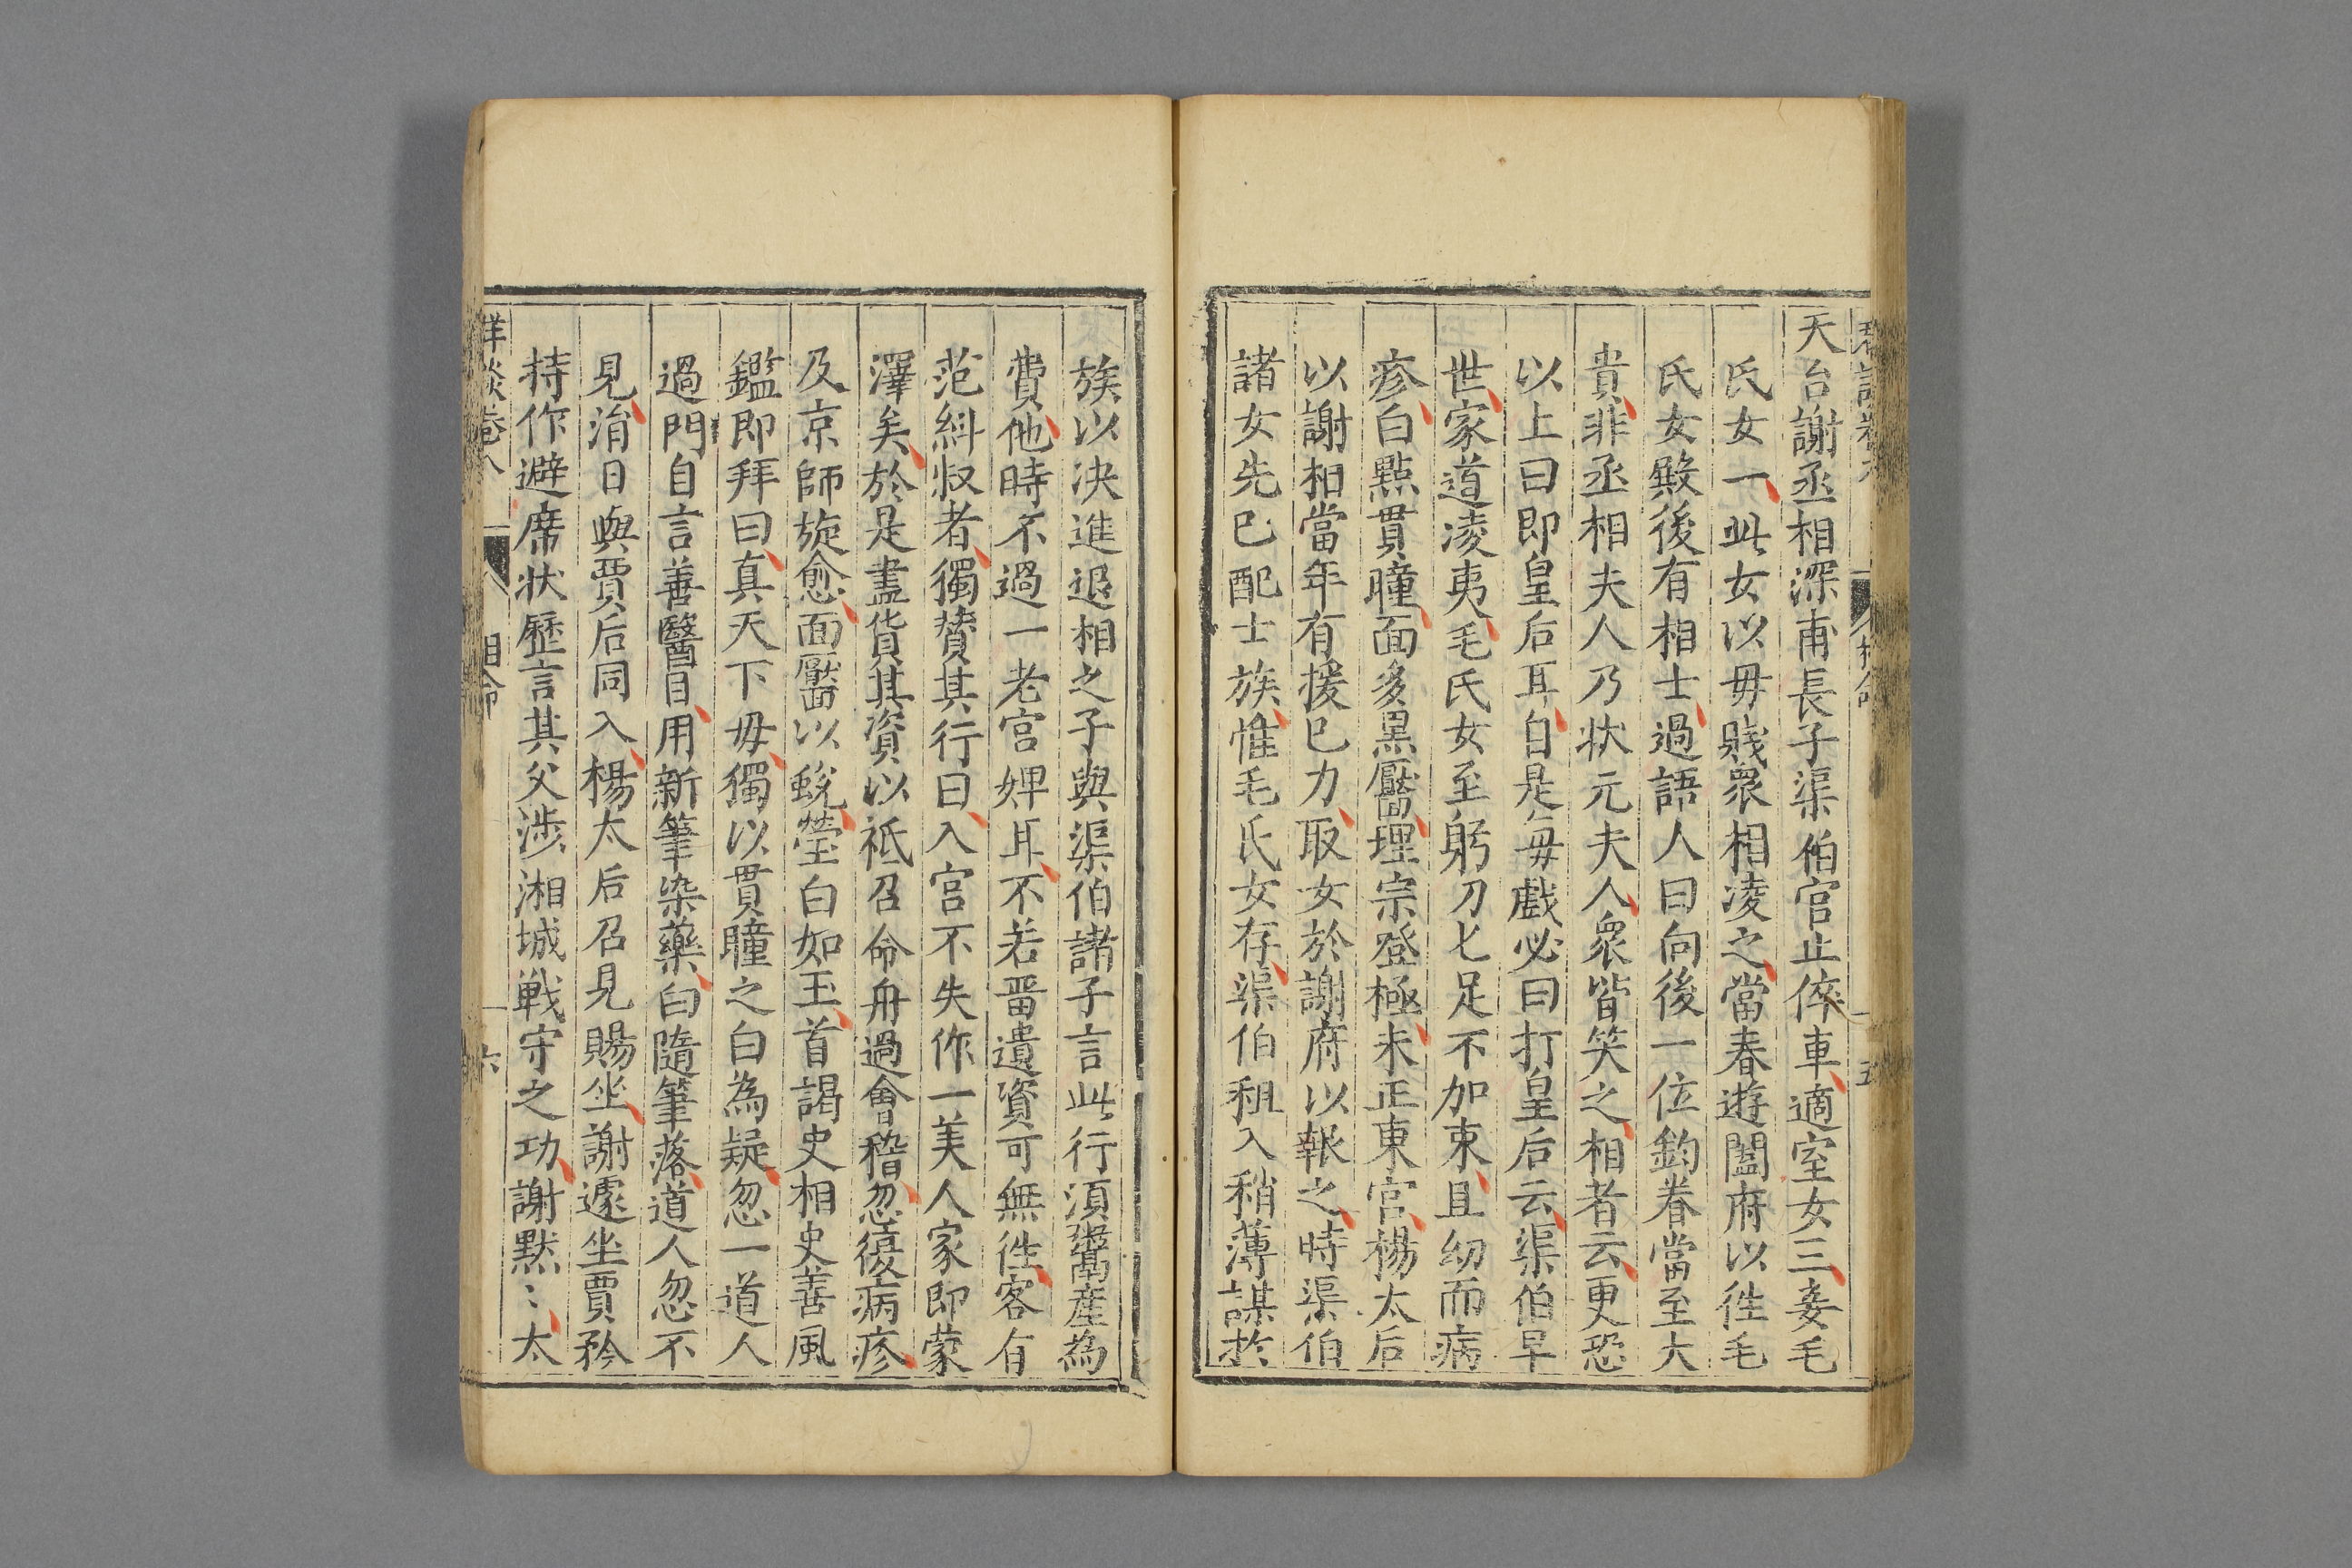 天台謝丞相深甫長子渠伯官止倅車適室女三妾毛
氏女一此女以毋賤衆相凌之當春遊闔府以徃毛
氏女殿後有相士過語人曰向後一位鈞眷當至大
貴非丞相夫人乃状元夫人衆皆笑之相者云更恐
以上曰即皇后耳自是毎戯必曰打皇后云渠伯早
世家道凌夷毛氏女至躬刀匕足不加束且幼而病
疹白㸃貫瞳面多黒黶理宗登極未正東宫楊太后
以謝相當年有援已力取女於謝府以報之時渠伯
諸女先已配士族惟毛氏女存渠伯租入稍薄謀於
族以決進退相之子與渠伯諸子言此行須鬻産為
費他時不過一老宫婢耳不若畱遺資可無徃客有
范糾叔者獨賛其行曰入宫不失作一美人家即蒙
澤矣於是盡貨其資以祗召命舟過會稽忽復病疹
及京師旋愈面黶以蛻瑩白如玉首謁史相史善風
鑑即拜曰真天下毋獨以貫瞳之白為疑忽一道人
過門自言善醫目用新筆染藥白隨筆落道人忽不
見涓日與賈后同入楊太后召見賜坐謝遽坐賈矜
持作避席状歷言其父渉湘城戰守之功謝黙〻太
卷八
相命
六